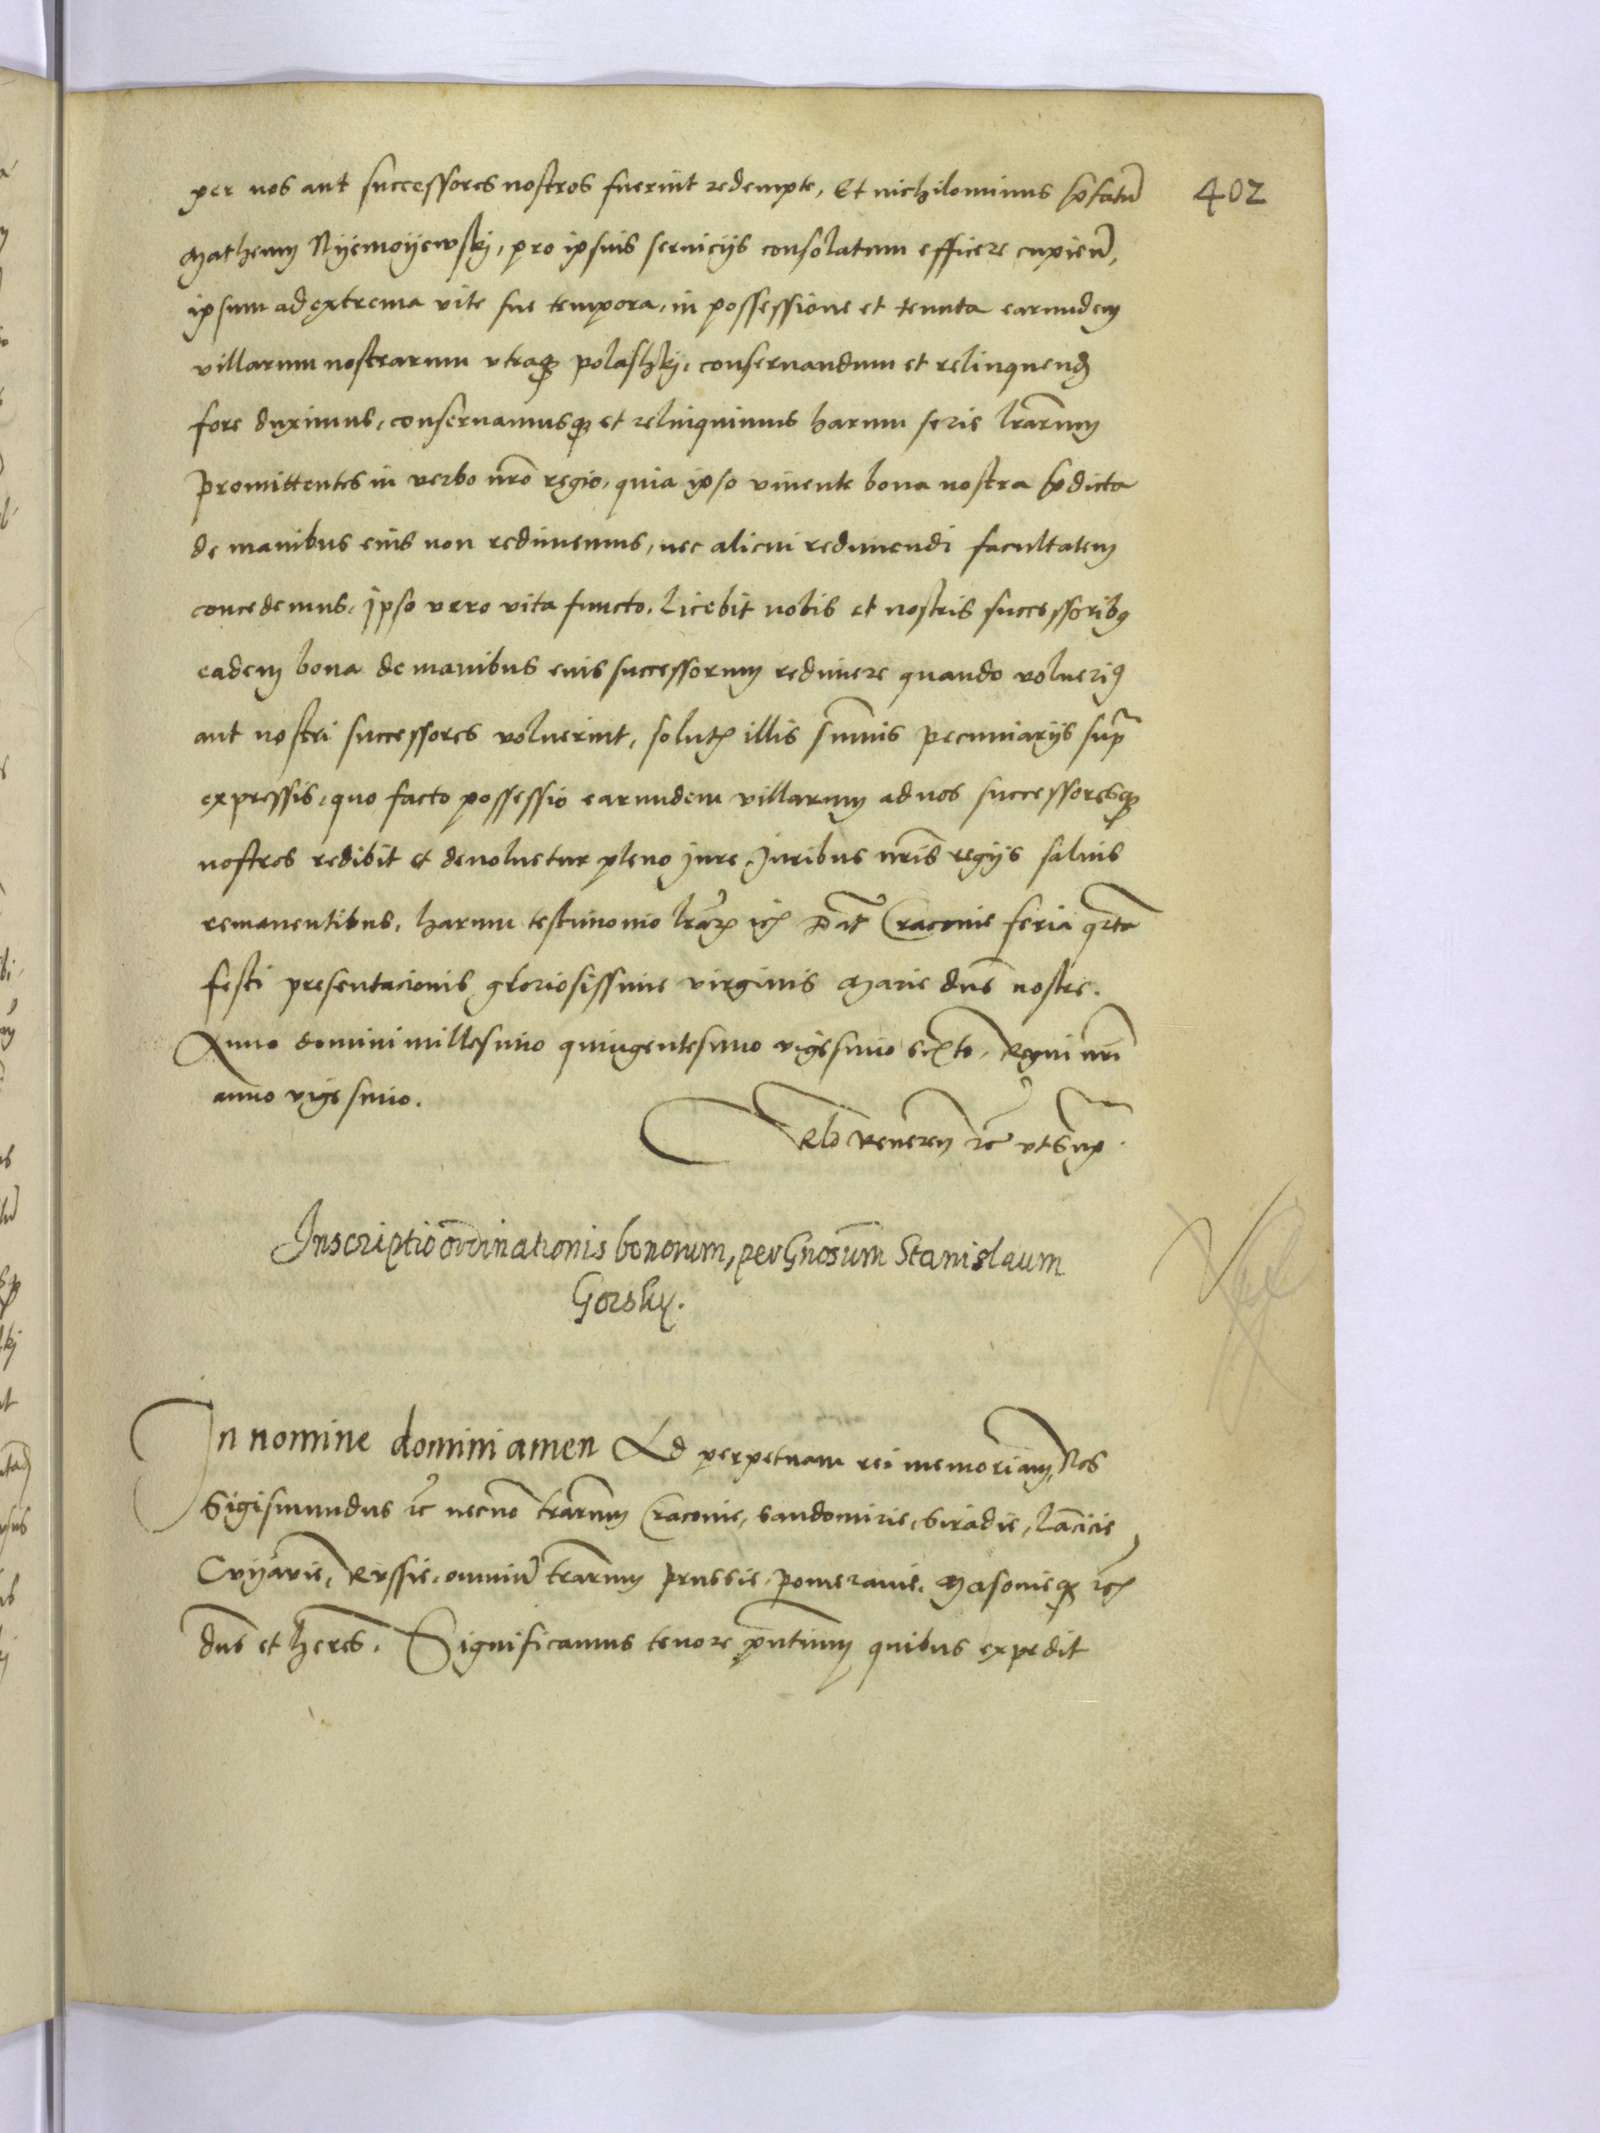 402
per nos aut successores nostros fuerint redempte, Et nichilominus p̄fatū
Mathem Nyemoyewskj, pro ipsius seruicijs consolatum efficere cupien̄,
ipsum ad extrema vite sue tempora, in possessione et tenuta earundem
villarum nostrarum vtraqꝫ polashkj, conseruandum et relinquend
fore duximus, conseruamusqꝫ et relinquimus harum serie lrārum
promittentes in verbo nrō regio, quia ipso viuente bona nostra p̄dicta
de manibus eius non redimemus, nec alicui redimendi facultatem
concedemus, Ipso vero vita functo, licebit nobis et nostris successoribꝰ
eadem bona de manibus eius successorum redimere quando voluerimꝰ
aut nostri successores voluerint, solutis illis sum̄is pecuniarijs supra
expressis, quo facto possessio earundem villarum ad nos successoresqꝫ
nostros redibit et deuoluetur pleno jure, Juribus nrīs regijs saluis
remanentibus, harum testimonio lrārꝫ ꝛcꝫ Dat Cracouie feria qrta
festi presentacionis gloriosissime virginis Marie dn̄e nostre.
Anno domini millesimo quingentesimo vigesimo sexto, Regni nrī
anno vigesimo.
Rlo Veneren ꝛc vt supra.
Inscriptio ordinationis bonorum, per Gnosum Stanislaum
Gorsky.
In nomine domini amen Ad perpetuam rei memoriam, Nos
Sigismundus ꝛc necno trārum Cracouie, Sandomirie, Siradie, Lan̄cicie,
Cuyauie, Russie, omniū trārum prussie, pomeranie, Masouieqꝫ ꝛcꝫ
dn̄s et heres. Significamus tenore pn̄tium quibus expedit